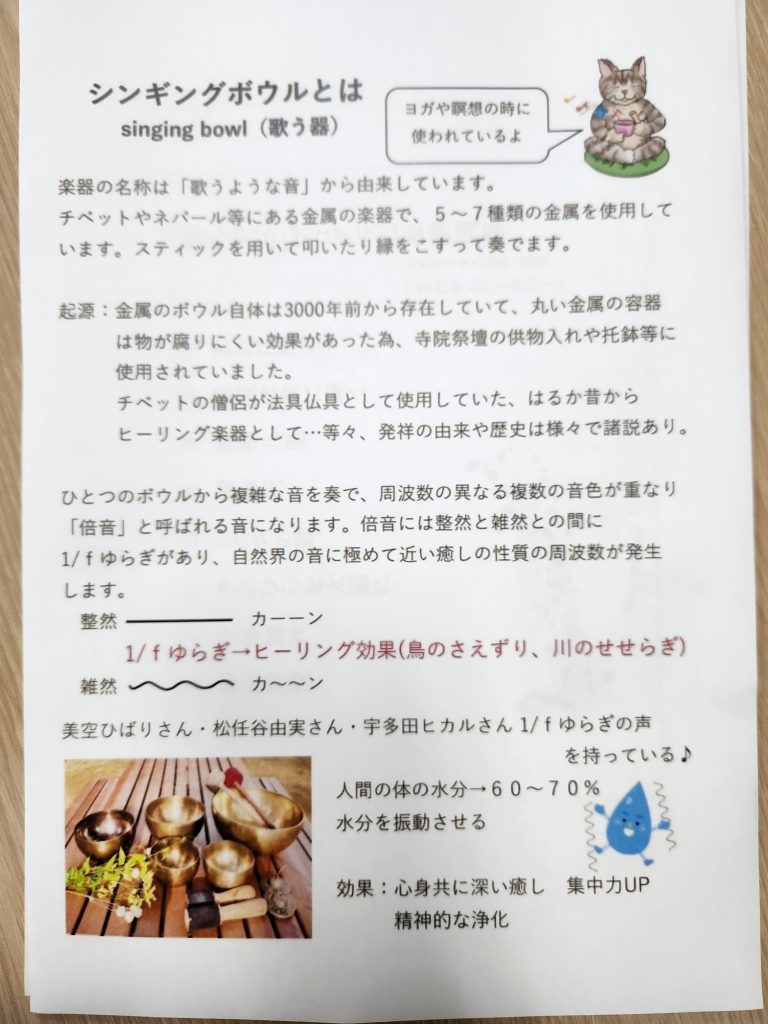 シンギングボウルとは
singing bowl（歌う器）
ヨガや瞑想の時に
使われているよ
楽器の名称は「歌うような音」から由来しています。
チベットやネパール等にある金属の楽器で、５～７種類の金属を使用して
います。スティックを用いて叩いたり縁をこすって奏でます。
起源：金属のボウル自体は3000年前から存在していて、丸い金属の容器
は物が腐りにくい効果があった為、寺院祭壇の供物入れや托鉢等に
使用されていました。
チベットの僧侶が法具仏具として使用していた、はるか昔から
ヒーリング楽器として…等々、発祥の由来や歴史は様々で諸説あり。
ひとつのボウルから複雑な音を奏で、周波数の異なる複数の音色が重なり
「倍音」と呼ばれる音になります。倍音には整然と雑然との間に
1/ｆゆらぎがあり、自然界の音に極めて近い癒しの性質の周波数が発生
します。
整然 カーーン
1/ｆゆらぎ→ヒーリング効果(鳥のさえずり、川のせせらぎ)
雑然 カ～～ン
美空ひばりさん・松任谷由実さん・宇多田ヒカルさん 1/ｆゆらぎの声
を持っている♪
人間の体の水分→６０～７０％
水分を振動させる
効果：心身共に深い癒し　集中力UP
精神的な浄化